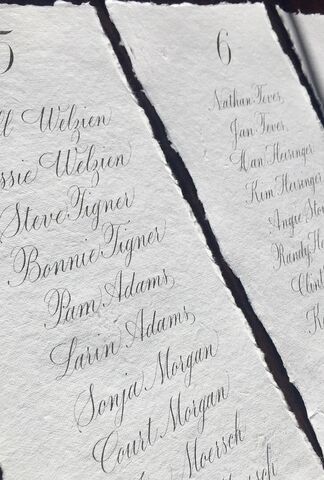 5
Welzien
Welzien
Steve Tigner
Bonnie Tigner
Pam Adams
Larin Adams
Sonja Morgan
Court Morgan
Moersch
6
Nathan Feves
Jan Feves
Heisinger
Kim Heisinger
Angie
Randy